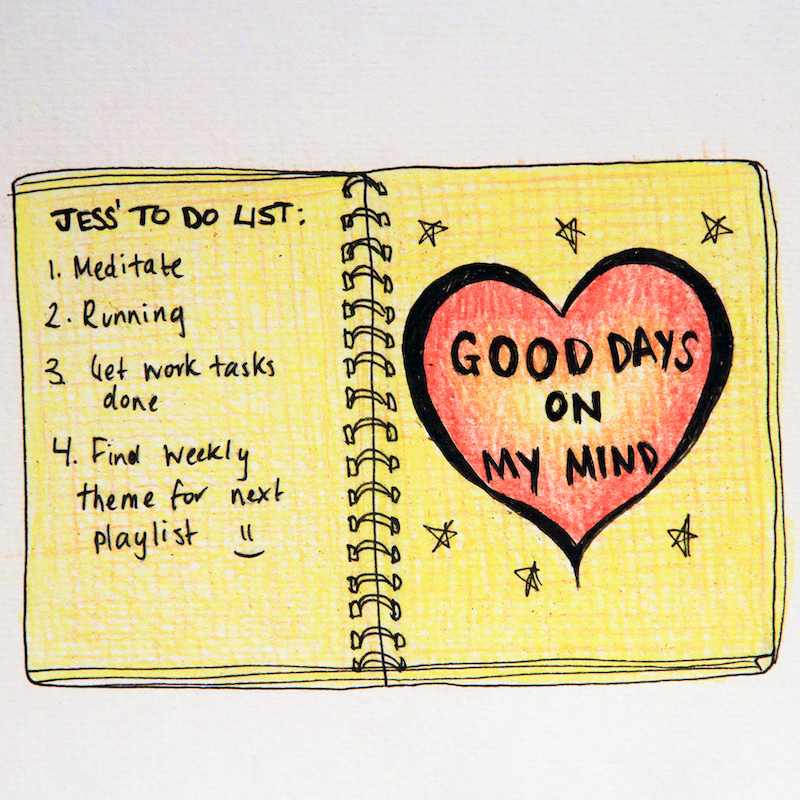 JESS' TO DO LIST:
1. Meditate
2. Running
3. Get work tasks
done
4. Find weekly
theme for next
playlist
GOOD DAYS
ON
MY MIND